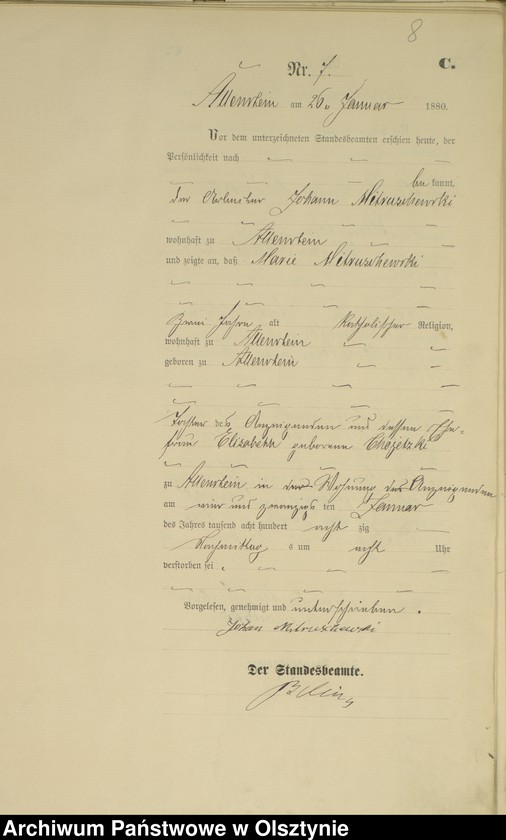 8
C.
Nr. 7.
Allenstein am 26. Januar 1880.
Vor dem unterzeichneten Standesbeamten erschien heute, der
Persönlichkeit nach
be kannt,
der Arbeiter Johann Mitruschewski
wohnhaft zu Allenstein
und zeigte an, daß Marie Mitruschewski
zwei Jahre alt katholischer Religion,
wohnhaft zu Allenstein
geboren zu Allenstein
Tochter des Anzeigenden und dessen Ehe-
frau Elisabeth geborene Chojetzki
zu Allenstein in der Wohnung des Anzeigenden
am vier und zwanzigs ten Januar
des Jahres tausend acht hundert acht zig
Nachmittag s um acht Uhr
verstorben sei.
Vorgelesen, genehmigt und unterschrieben.
Johan Mitruschewski
Der Standesbeamte.
Archiwum Państwowe w Olsztynie